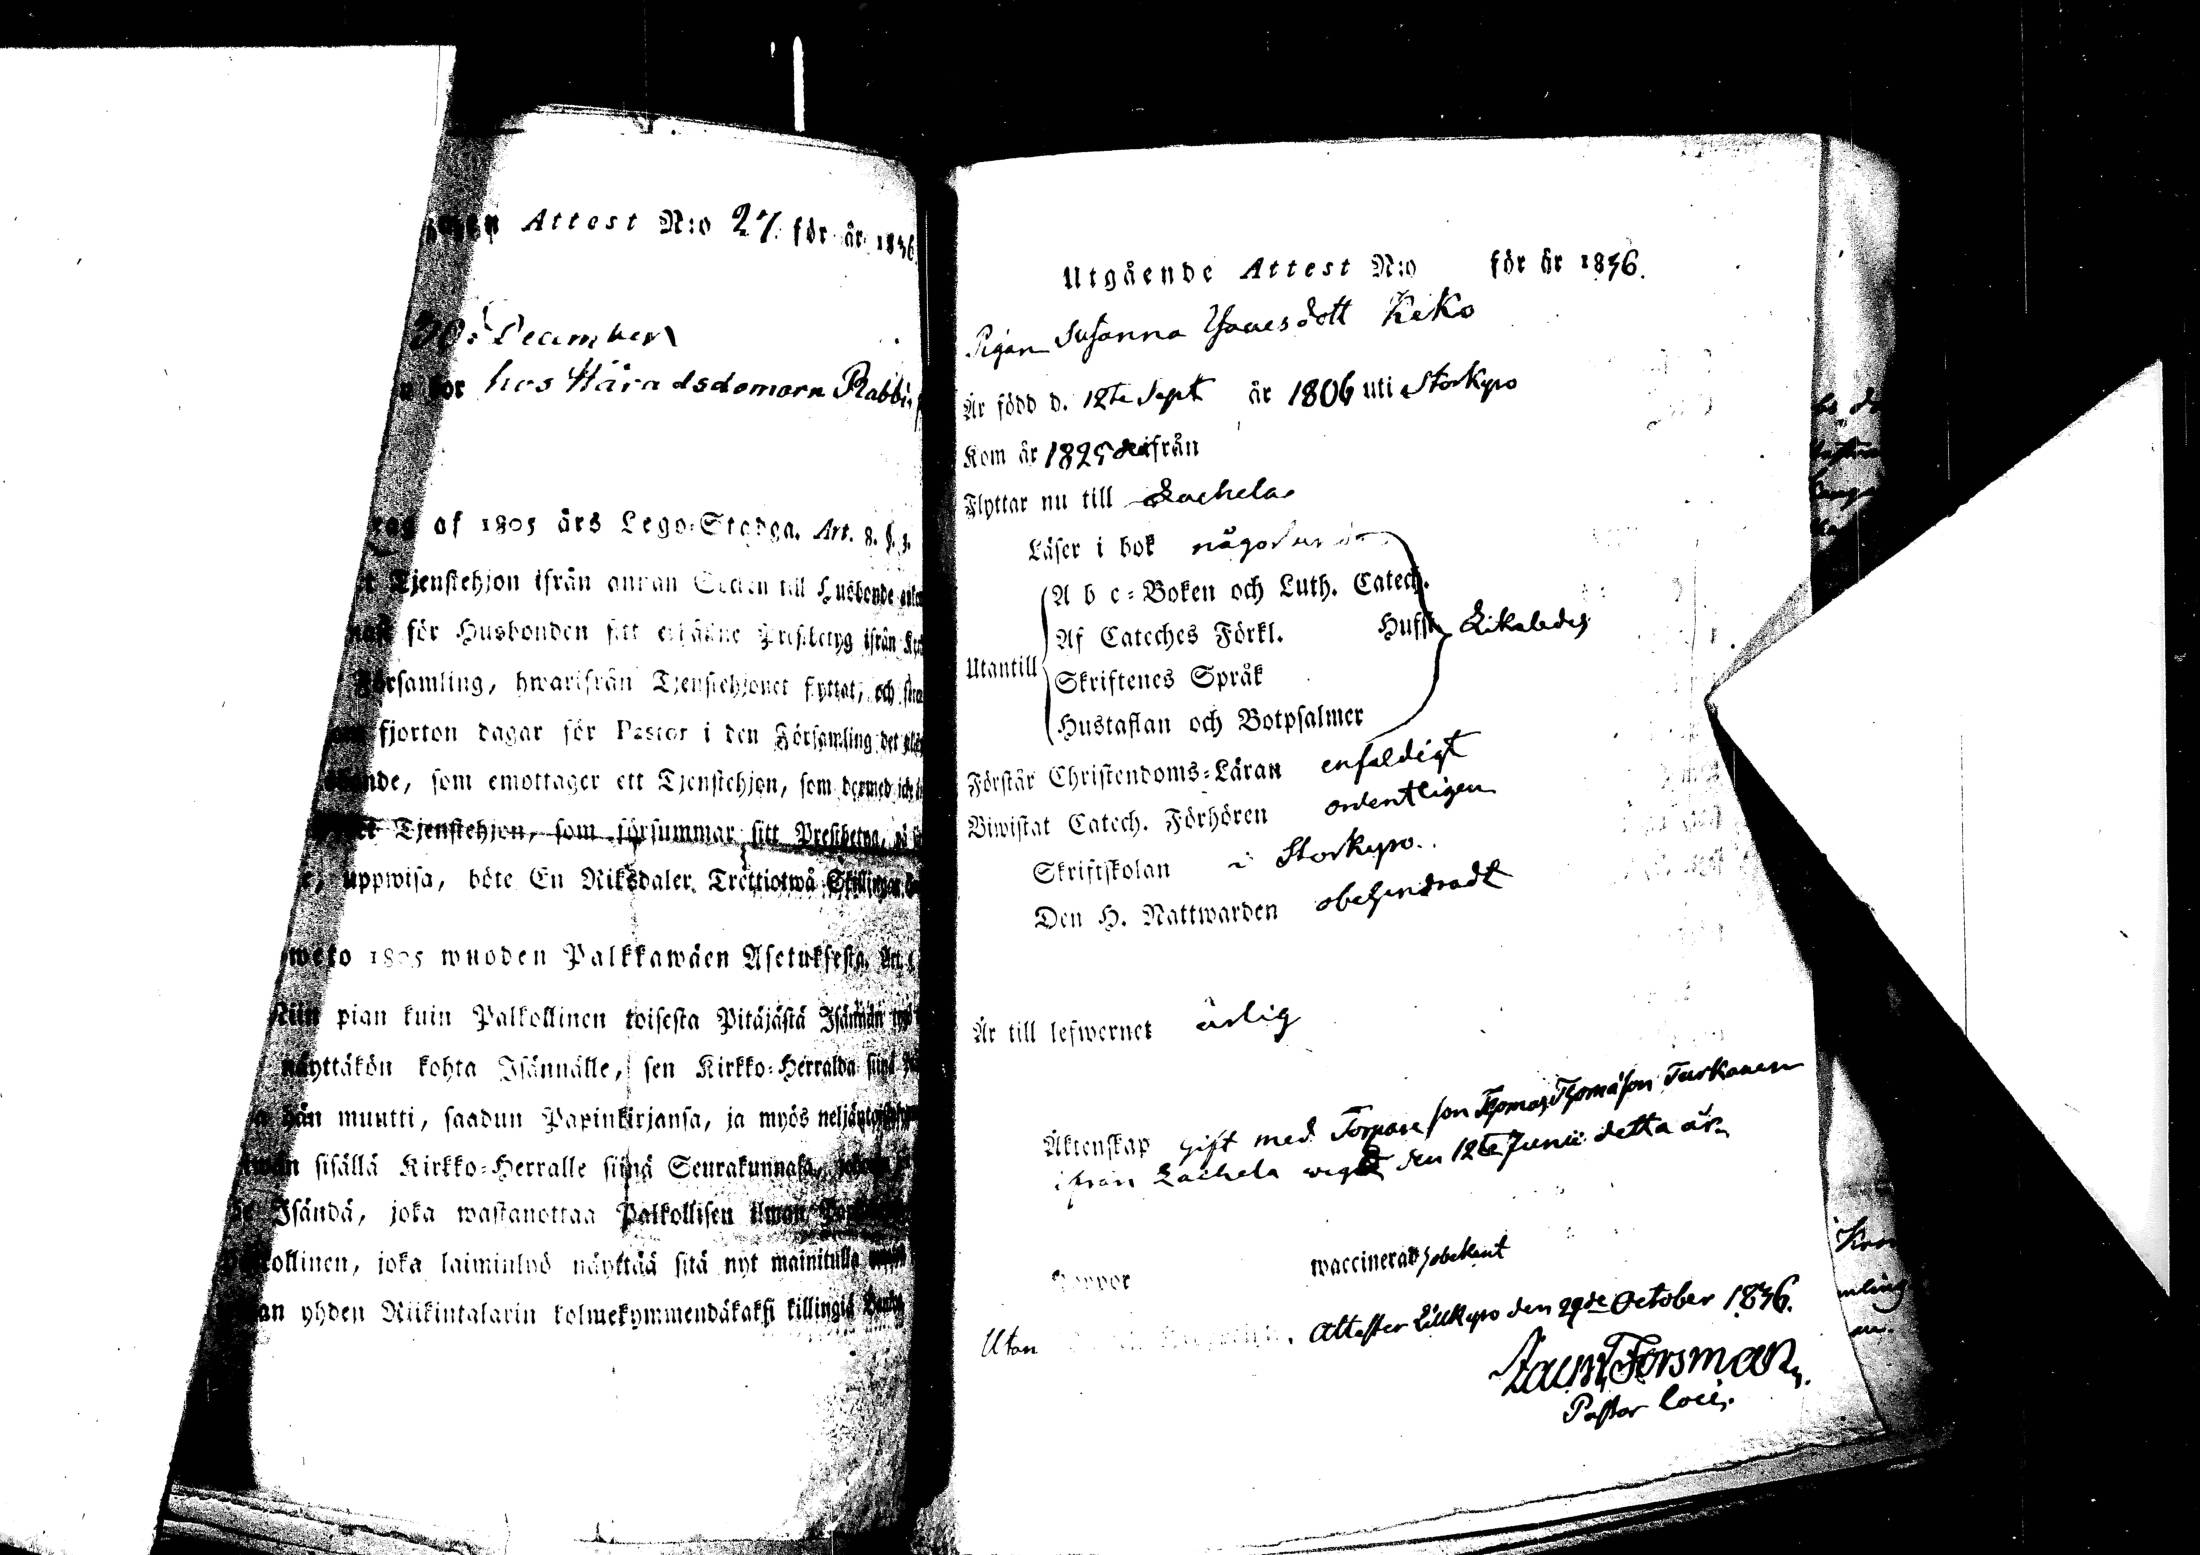 Attest N:o 27. för år 1836.
30: December
hos Häradsdomarn Rabbi
af 1805 års Lego-Stadga. Art. 8. §. 3.
Tjenstehjon ifrån annan Socken till Husbonde
för Husbonden sitt erhållne Prestbetyg ifrån
Församling, hwarifrån Tjenstehjonet flyttat, och
fjorton dagar för Pastor i den Församling det
som emottager ett Tjenstehjon, som dermed icke
Tjenstehjon, som försummar sitt Prestbetyg,
uppwisa, böte En Riksdaler Trettiotwå Skillingar
1805 wuoden Palkkawäen Asetuksesta. Art.
Niin pian kuin Palkollinen toisesta Pitäjästä Isännän
näyttäkön kohta Isännälle, sen Kirkko-Herralda siinä
hän muutti, saadun Papinkirjansa, ja myös
sisällä Kirkko-Herralle siinä Seurakunnasa,
Isändä, joka wastanottaa Palkollisen ilman
joka laiminlyö näyttää sitä nyt mainitulla
yhden Riikintalarin kolmekymmendäkaksi killingiä
Utgående Attest N:o för år 1836.
Pigan Susanna Keko
Är född d. 12te Sept år 1806 uti Storkyro
Kom år 1825 ifrån
Flyttar nu till Lachela
Läser i bok någorlunda
Utantill
A b c-Boken och Luth. Catech.
Af Cateches Förkl. Hufst Likaledes
Skriftenes Språk
Hustaflan och Botpsalmer
Förstår Christendoms-Läran enfaldigt
Biwistat Catech. Förhören ordentligen
Skriftskolan i Storkyro.
Den H. Nattwarden obehindradt
Är till lefwernet ärlig
Äktenskap gift med Torpare son Thomas Thomasson Turkanen
ifrån Lachela wigd den 12te Junii detta år
Koppor waccinerad, obekant
Utan Attester Lillkyro den 29de October 1836.
Forsman
Pastor loci.